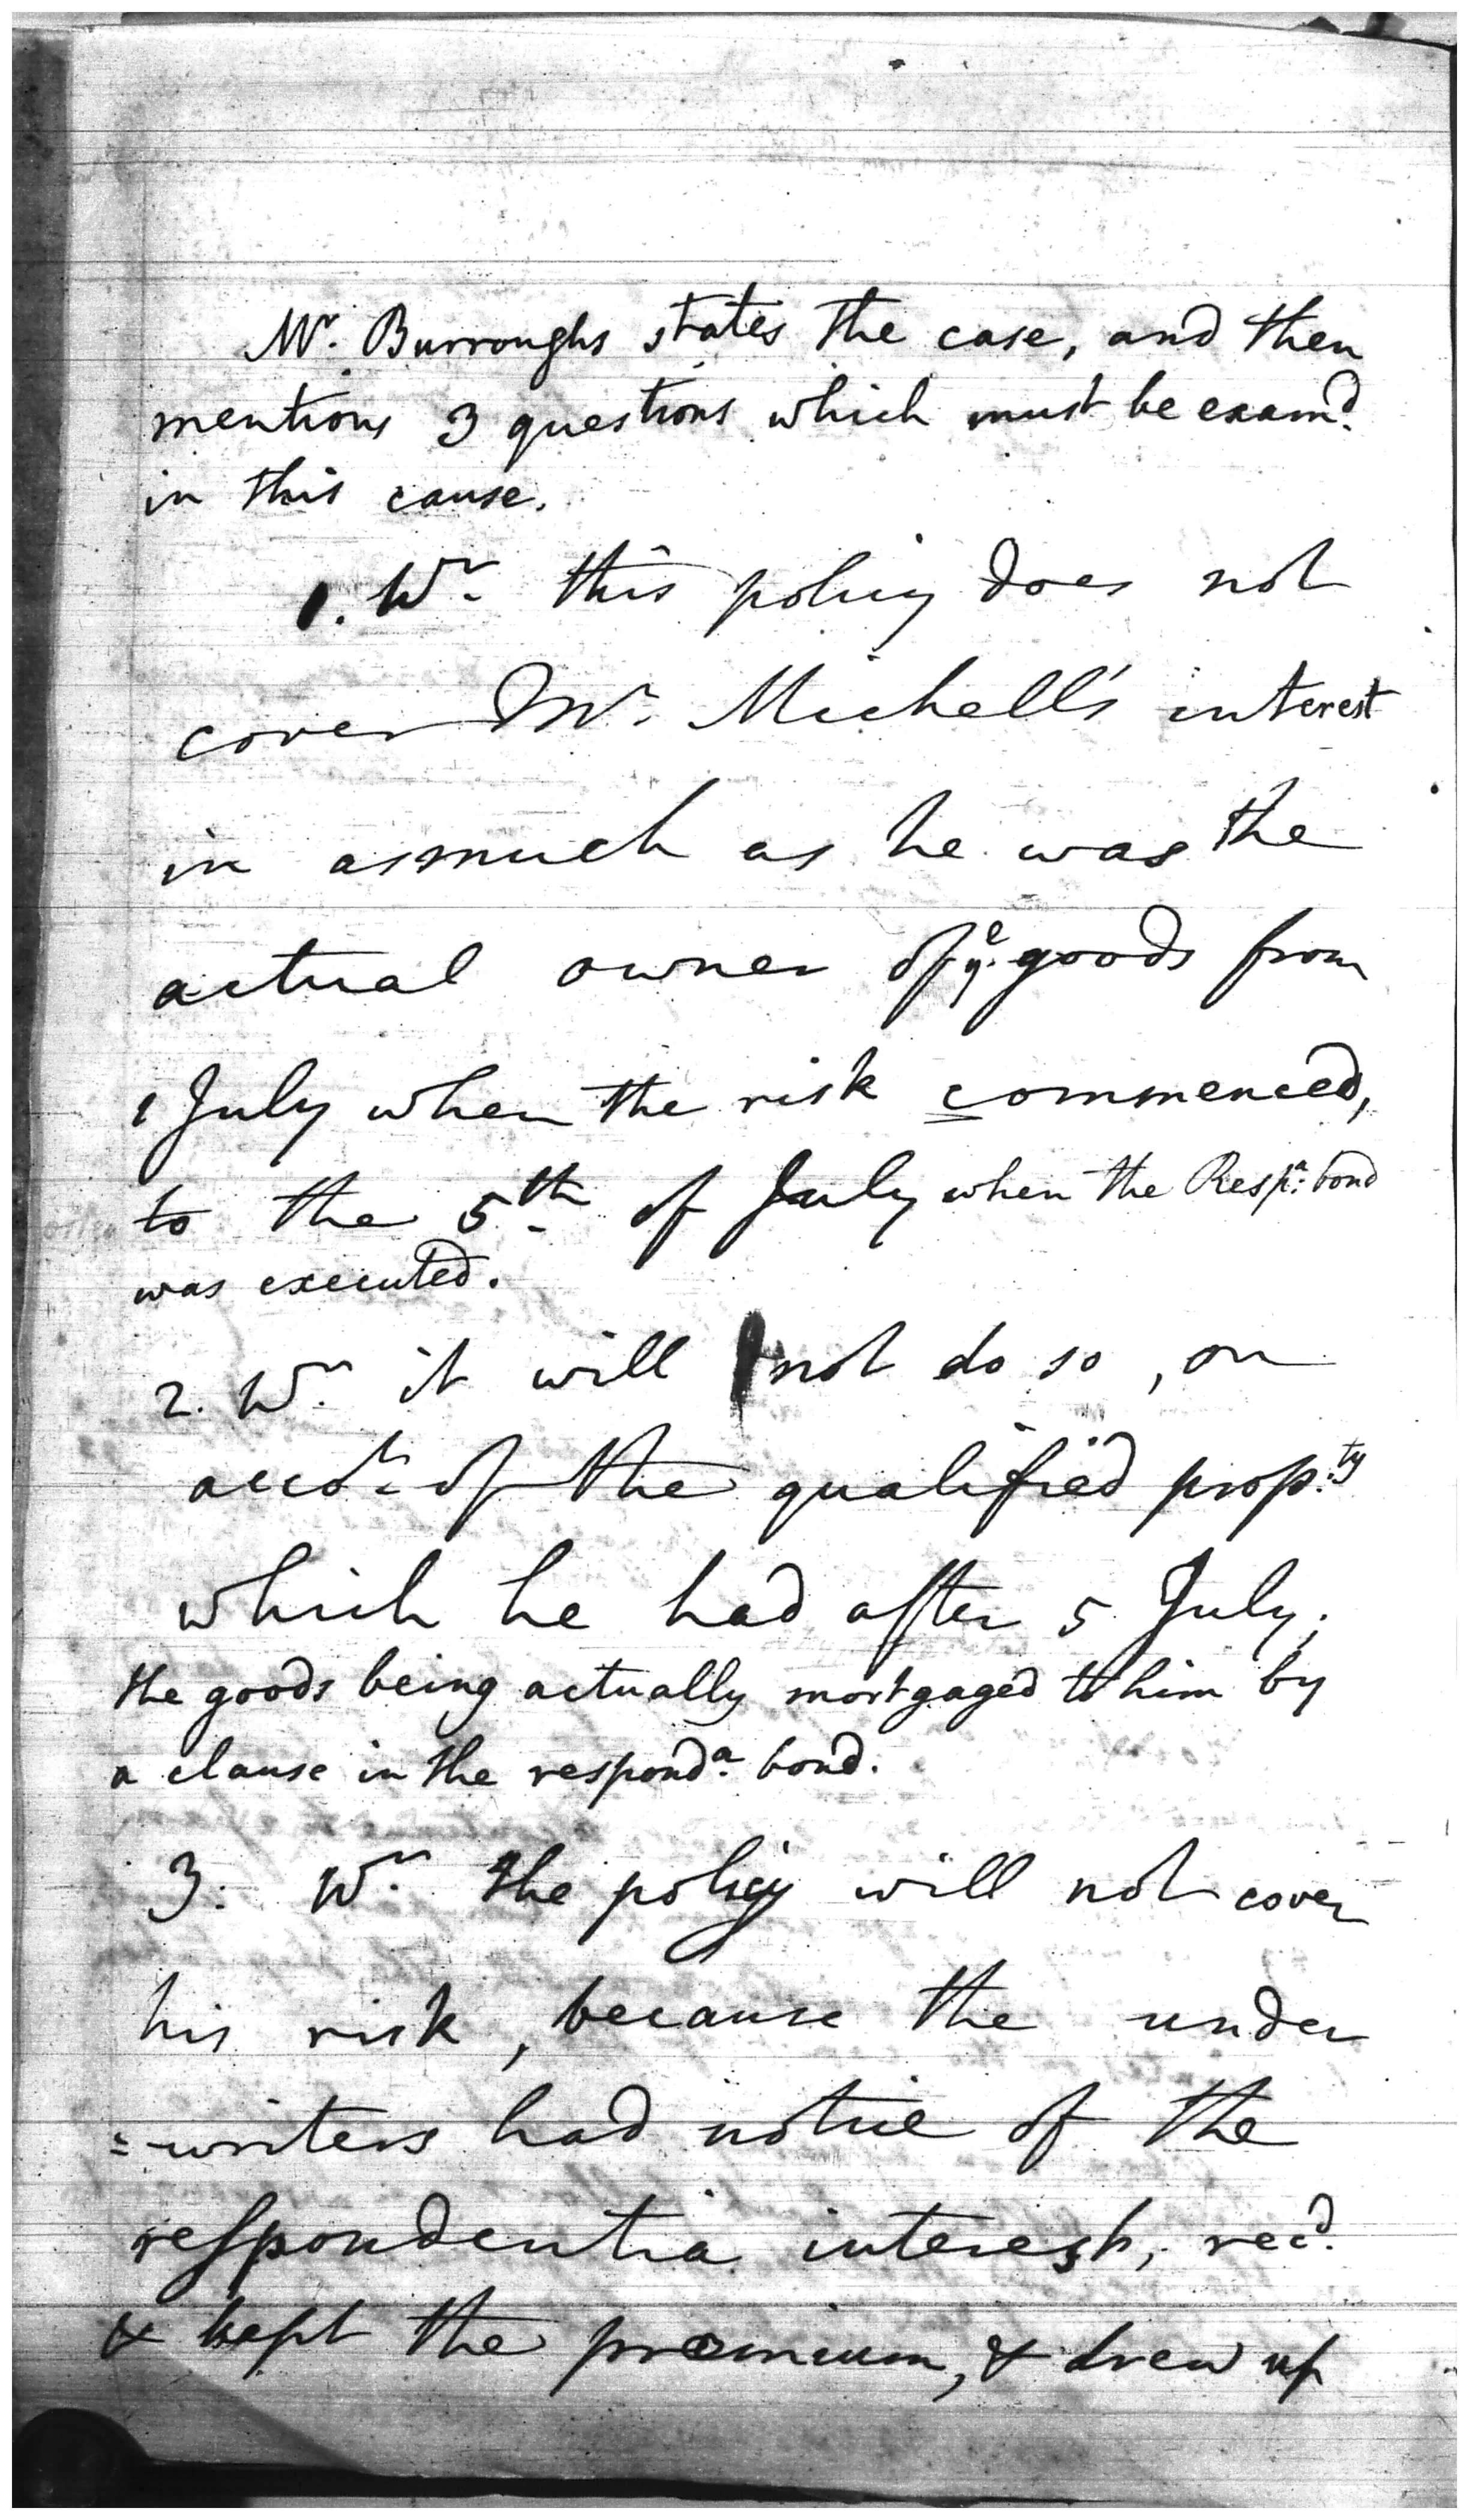 Mr. Burroughs states the case, and then
mentions 3 questions which must be examd.
in this cause.
1. Wr. this policy does not
cover Mr. Michell's interest
in asmuch as he was the
actual owner of ye. goods from
1 July when the risk commenced,
to the 5th of July when the Respa. bond
was executed.
2. Wr. it will not do so, on
acct. of the qualified prop.ty
which he had after 5 July;
the goods being actually mortgaged to him by
a clause in the responda. bond.
3. Wr. the policy will not cover
his risk, because the under
=writers had notice of the
respondentia interest, recd.
& kept the praemium, & drew up